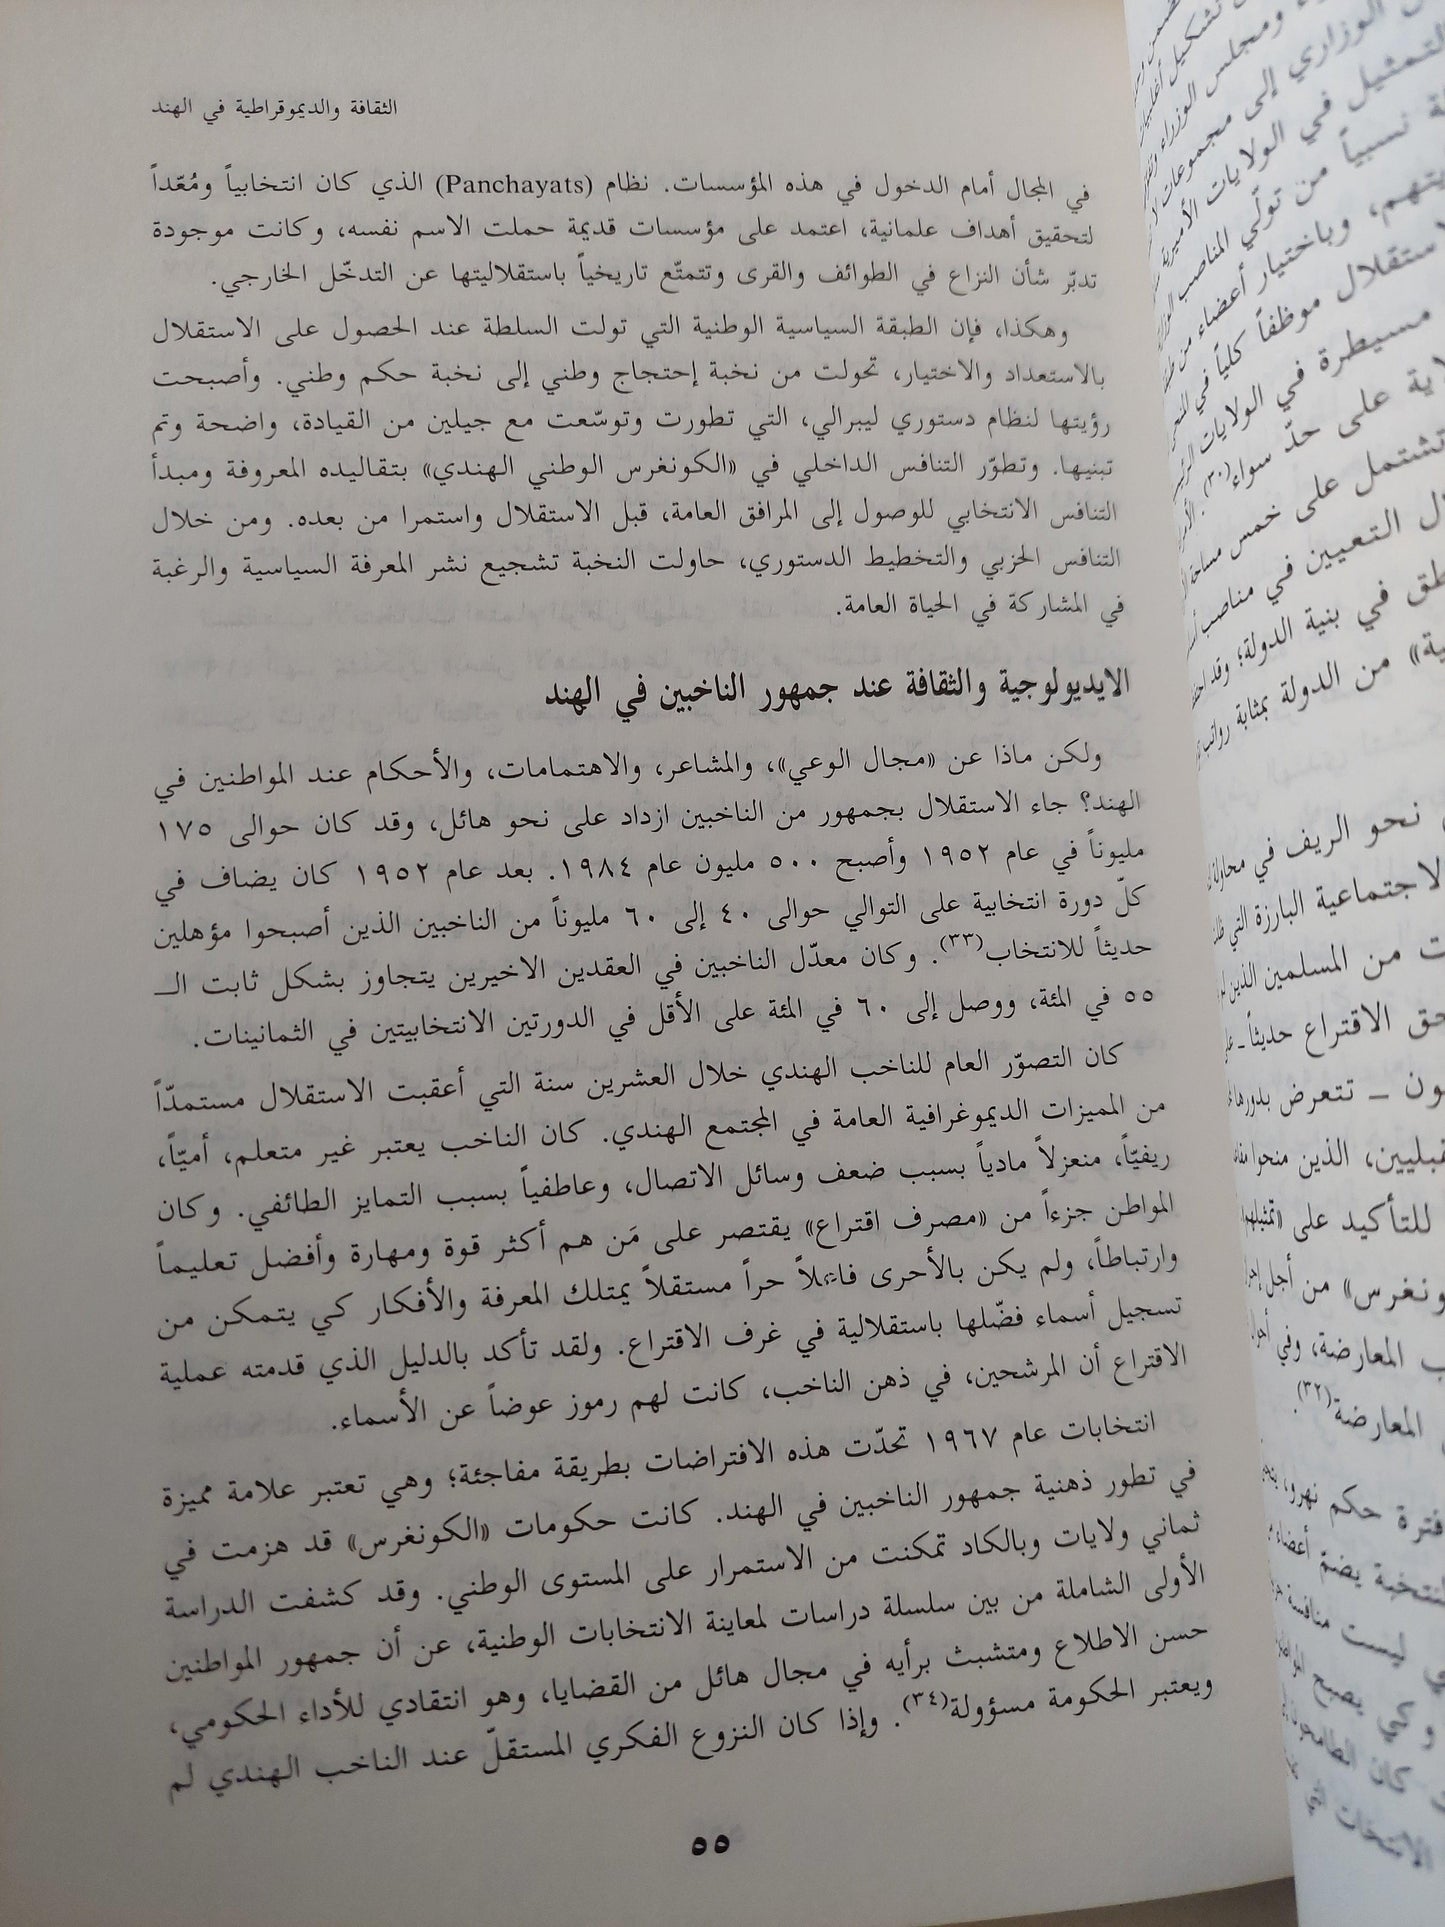 الثقافة والديموقراطية في الهند
في المجال أمام الدخول في هذه المؤسسات. نظام (Panchayats) الذي كان انتخابياً ومُعّداً
لتحقيق أهداف علمانية، اعتمد على مؤسسات قديمة حملت الاسم نفسه، وكانت موجودة
تدبّر شأن النزاع في الطوائف والقرى وتتمتّع تاريخياً باستقلاليتها عن التدخّل الخارجي.
وهكذا، فإن الطبقة السياسية الوطنية التي تولت السلطة عند الحصول على الاستقلال
بالاستعداد والاختيار، تحولت من نخبة إحتجاج وطني إلى نخبة حكم وطني. وأصبحت
رؤيتها لنظام دستوري ليبرالي، التي تطورت وتوسّعت مع جيلين من القيادة، واضحة وتم
تبنيها. وتطوّر التنافس الداخلي في «الكونغرس الوطني الهندي» بتقاليده المعروفة ومبدأ
التنافس الانتخابي للوصول إلى المرافق العامة، قبل الاستقلال واستمرا من بعده. ومن خلال
التنافس الحزبي والتخطيط الدستوري، حاولت النخبة تشجيع نشر المعرفة السياسية والرغبة
في المشاركة في الحياة العامة.
الايديولوجية والثقافة عند جمهور الناخبين في الهند
ولكن ماذا عن «مجال الوعي»، والمشاعر، والاهتمامات، والأحكام عند المواطنين في
الهند؟ جاء الاستقلال بجمهور من الناخبين ازداد على نحو هائل، وقد كان حوالى ١٧٥
مليوناً في عام ١٩٥٢ وأصبح ٥٠٠ مليون عام ١٩٨٤. بعد عام ١٩٥٢ كان يضاف في
كلّ دورة انتخابية على التوالي حوالى ٤٠ إلى ٦٠ مليوناً من الناخبين الذين أصبحوا مؤهلين
حديثاً للانتخاب(٣٣). وكان معدّل الناخبين في العقدين الاخيرين يتجاوز بشكل ثابت الـ
٥٥ في المئة، ووصل إلى ٦٠ في المئة على الأقل في الدورتين الانتخابيتين في الثمانينات.
كان التصوّر العام للناخب الهندي خلال العشرين سنة التي أعقبت الاستقلال مستمدّاً
من المميزات الديموغرافية العامة في المجتمع الهندي. كان الناخب يعتبر غير متعلم، أميّاً،
ريفيّاً، منعزلاً مادياً بسبب ضعف وسائل الاتصال، وعاطفياً بسبب التمايز الطائفي. وكان
المواطن جزءاً من «مصرف اقتراع» يقتصر على مَن هم أكثر قوة ومهارة وأفضل تعليماً
وارتباطاً، ولم يكن بالأحرى فاعلاً حراً مستقلاً يمتلك المعرفة والأفكار كي يتمكن من
تسجيل أسماء فضّلها باستقلالية في غرف الاقتراع. ولقد تأكد بالدليل الذي قدمته عملية
الاقتراع أن المرشحين، في ذهن الناخب، كانت لهم رموز عوضاً عن الأسماء.
انتخابات عام ١٩٦٧ تحدّت هذه الافتراضات بطريقة مفاجئة؛ وهي تعتبر علامة مميزة
في تطور ذهنية جمهور الناخبين في الهند. كانت حكومات «الكونغرس» قد هزمت في
ثماني ولايات وبالكاد تمكنت من الاستمرار على المستوى الوطني. وقد كشفت الدراسة
الأولى الشاملة من بين سلسلة دراسات لمعاينة الانتخابات الوطنية، عن أن جمهور المواطنين
حسن الاطلاع ومتشبث برأيه في مجال هائل من القضايا، وهو انتقادي للأداء الحكومي،
ويعتبر الحكومة مسؤولة(٣٤). وإذا كان النزوع الفكري المستقلّ عند الناخب الهندي لم
٥٥
تشكيل
ومجلس الوزراء
الوزاري إلى مجموعات
التمثيل في الولايات الأميرية
نسبياً من تولّي المناصب
وباختيار أعضاء من
موظفاً كلياً في
مسيطرة في الولايات
على حدّ سواء(٣٠).
تشتمل على خمس مساحة
التعيين في مناصب
في بنية الدولة؛ وقد
من الدولة بمثابة رواتب
نحو الريف في
البارزة التي
من المسلمين الذين
حق الاقتراع حديثاً ـ
ـ تتعرض بدورها
الذين منحوا
للتأكيد على
من أجل
المعارضة، وفي
المعارضة(٣٢).
فترة حكم نهرو،
يضمّ أعضاء
ليست منافسة
وكي يصبح
كان